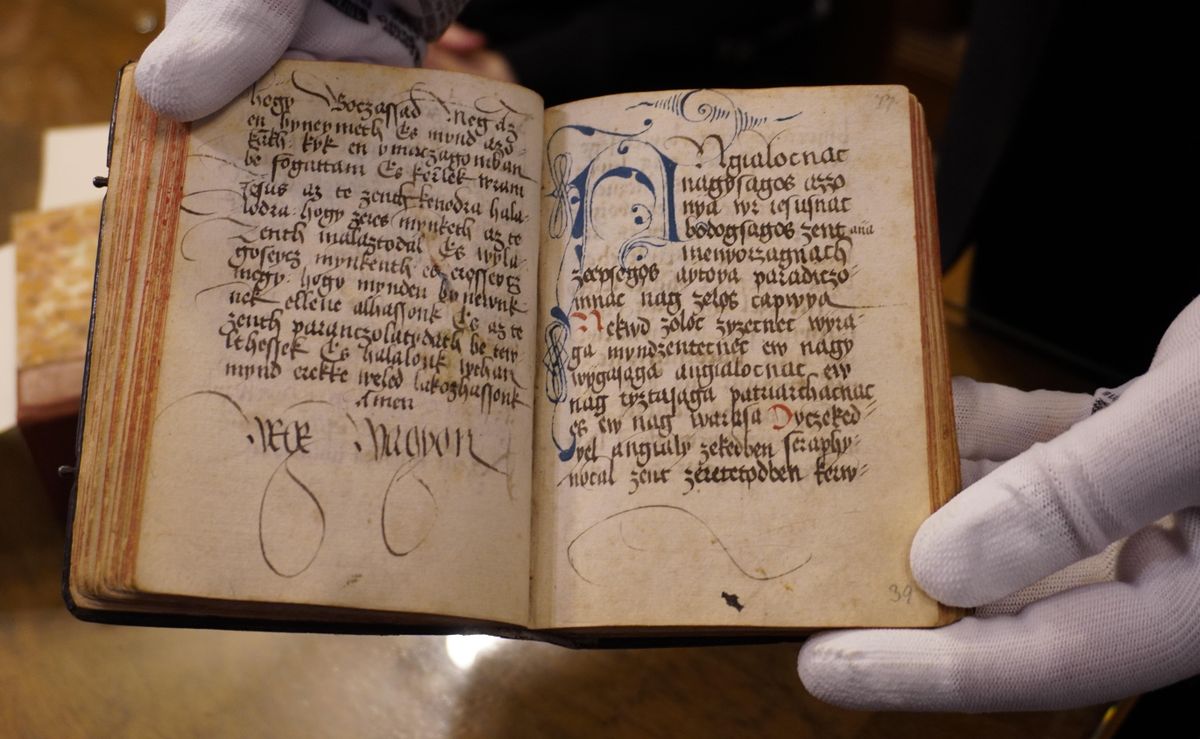 hogy Boczassad Meg az
en byneymeth Es mynd azo
kath kyk en ymaczagomban
be foguttam Es kerlek wram
Jesus az te zenth kenodra hala-
lodra hogy zeres mynketh az te
Zenth malaztodal Es wyla
goseycz mynkenth es erosseycz
megy hogy mynden bynewnk
nek ellene alhassonk Es az te
zenth paranczolatydath be tew
lthessek Es halalonk wthan
mynd erekke weled lakozhassonk
Amen
ANgialocnac
nagysagos azzo
nya wr iesusnac
bodogsagos zent ania
menyorzagnach
zeepsegos aytoya paradiczo-
mnac nag zelos capwya
Nekyd zoloc zyzecnec wyra-
ga myndzentecnec ew nagy
wygasaga angialocnac ew
nag tyztasaga patriarchacnac
es ew nag warasa Dyczeked-
yel angialy zekedben seraphy-
nocal zent zeretetodben kerw-
39